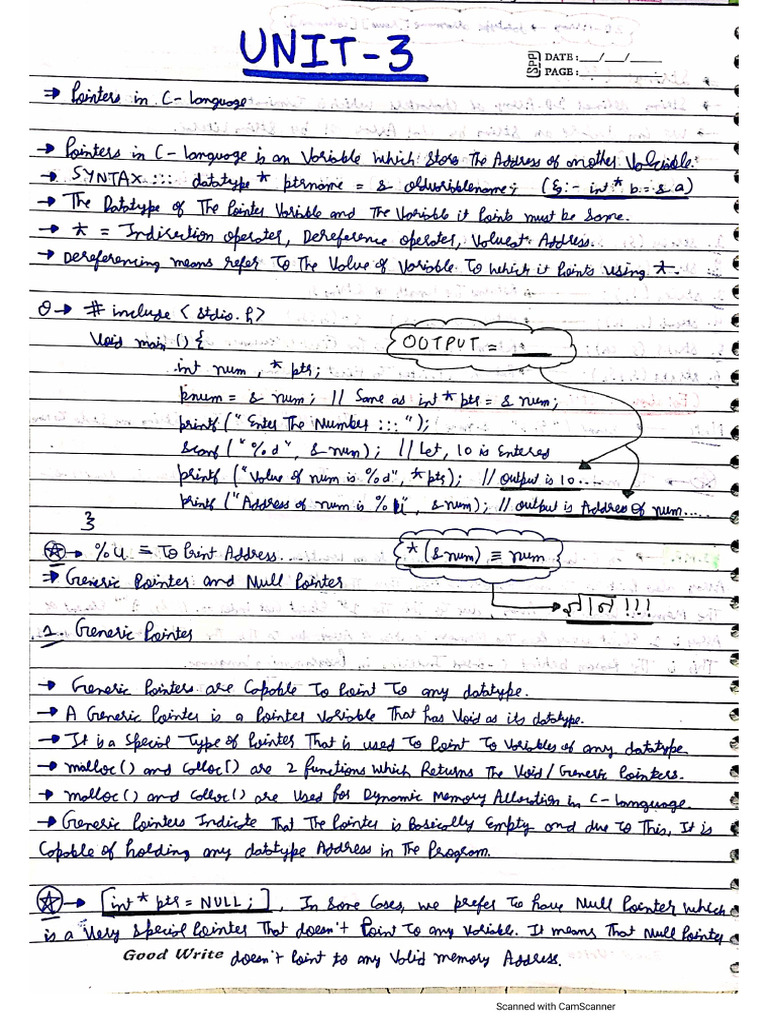 UNIT-3
DATE: __/__/____
PAGE:
⇒ Pointers in C-language
→ Pointers in C-language is an Variable which store The Address of another Variable.
→ SYNTAX ::: datatype * ptrname = & oldvariblename; (Eg:- int* b = & a)
→ The Datatype of The Pointer Variable and The Variable it Points must be same.
→ * = Indirection operater, Dereference operater, Valueat Address.
→ Dereferencing means refer To The Value of Variable To which it Points using *.
→ # include < stdio.h>
Void main () {
OUTPUT =
int num , * ptr;
pnum = & num ; // Same as int * ptr = & num;
printf ("Enter The Number ::: ");
scanf ("%d", & num); // Let, 10 is Entered
printf ("Value of num is %d", *ptr); // output is 10....
printf ("Address of num is %u", &num); // output is Address of num.....
}
→ %u = To Print Address..
*(&num) ≡ num
⇒ Generic Pointer and Null Pointer
!!!
1. Generic Pointer
→ Generic Pointers are Capable To Point To any datatype.
→ A Generic Pointer is a Pointer Variable That has Void as its datatype.
→ It is a Special Type of Pointer That is used To Point To Variables of any datatype
→ malloc() and Calloc() are 2 functions which Returns The Void/Generic Pointers.
→ malloc() and Calloc() are Used for Dynamic Memory Allocation in C-language.
→ Generic Pointers Indicate That The Pointer is Basically Empty and due to This, It is
Capable of holding any datatype Address in The Program.
→ [int * ptr = NULL;], In Some Cases, we prefer To have Null Pointer which
is a Very Special Pointer That doesn't Point To any Variable. It means That Null Pointer
Good Write doesn't Point to any Valid memory Address.
Scanned with CamScanner